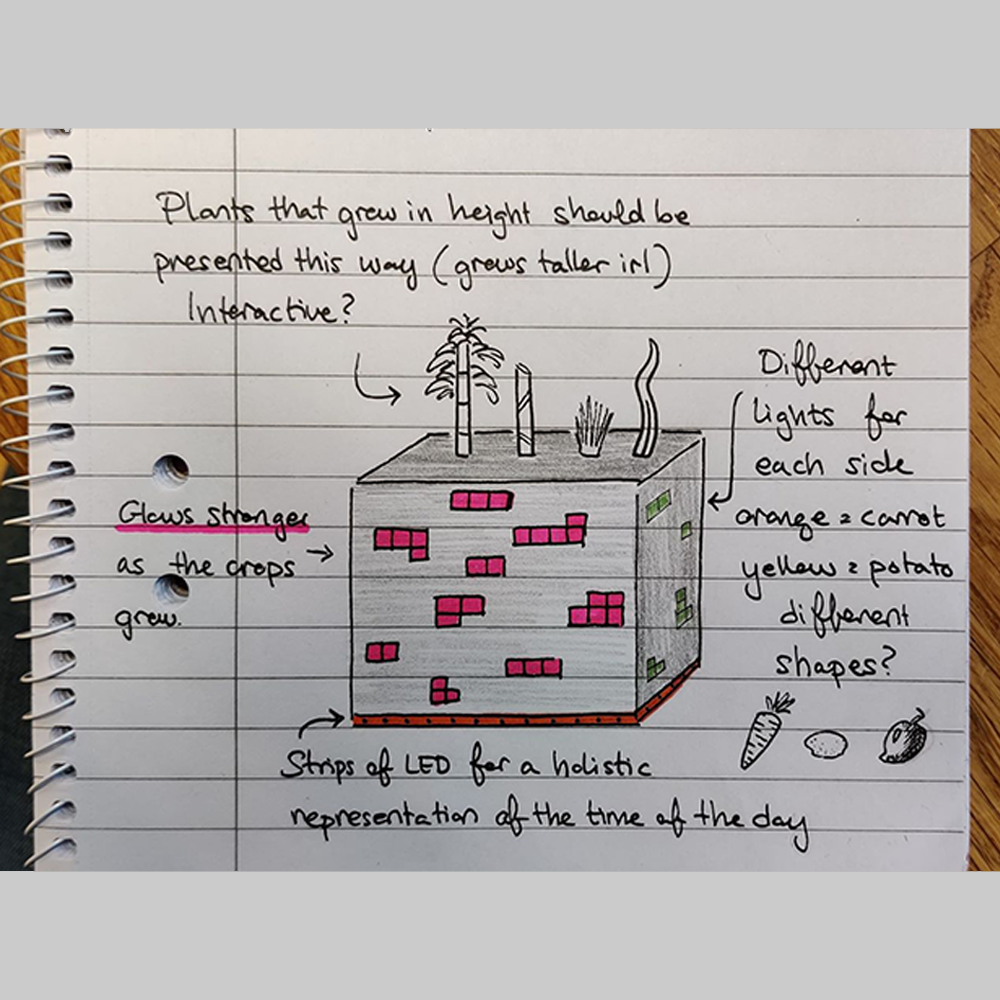 Plants that grow in height should be
presented this way (grows taller irl)
Interactive?
Glows stronger
as the crops
grow.
Different
lights for
each side
orange = carrot
yellow = potato
different
shapes?
Strips of LED for a holistic
representation of the time of the day